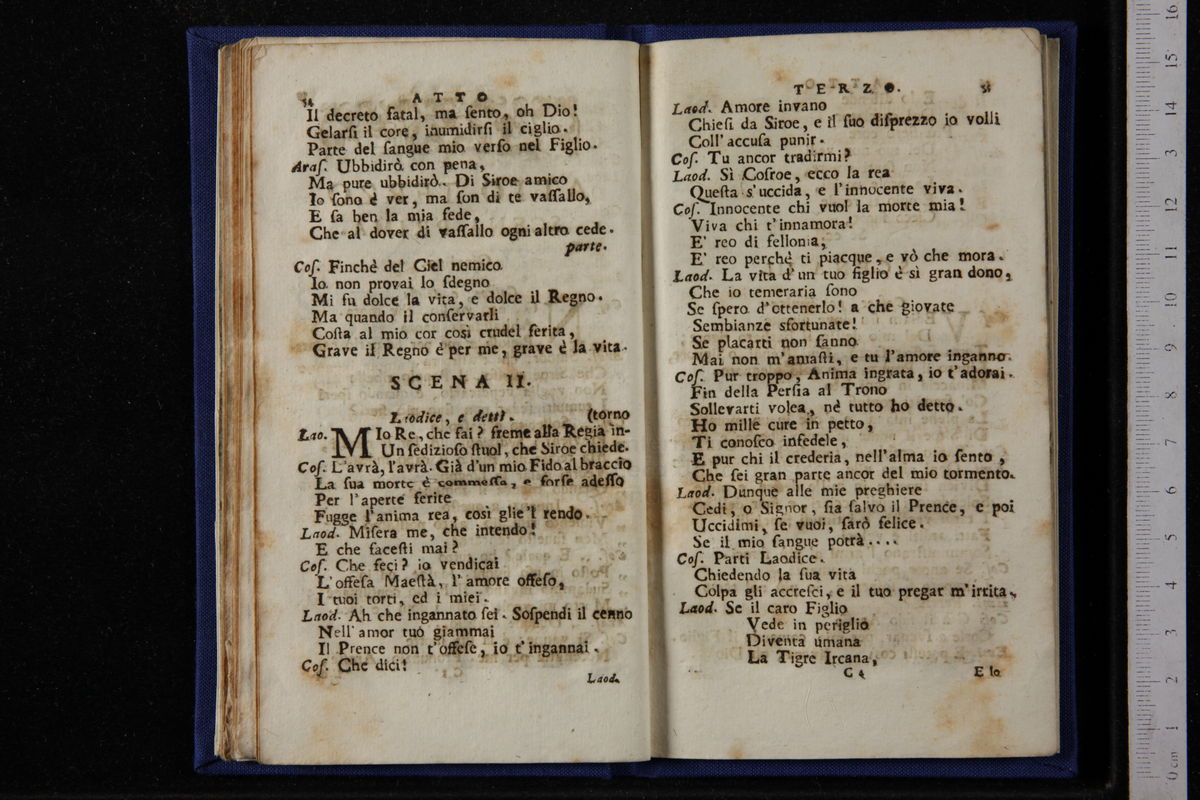 54
ATTO
Il decreto fatal, ma ſento, oh Dio!
Gelarſi il core, inumidirſi il ciglio.
Parte del ſangue mio verſo nel Figlio.
Araſ. Ubbidirò con pena,
Ma pure ubbidirò. Di Siroe amico
Io ſono è ver, ma ſon di te vaſſallo,
E ſa ben la mia fede,
Che al dover di vaſſallo ogni altro cede.
parte.
Coſ. Finchè del Ciel nemico
Io non provai lo ſdegno
Mi fu dolce la vita, e dolce il Regno.
Ma quando il conſervarli
Coſta al mio cor così crudel ferita,
Grave il Regno è per me, grave è la vita.
SCENA II.
Laodice, e detti. (torno
Lao. MIo Re, che fai? freme alla Regia in-
Un ſedizioſo ſtuol, che Siroe chiede.
Coſ. L'avrà, l'avrà. Già d'un mio Fido al braccio
La ſua morte è commeſſa, e forſe adeſſo
Per l'aperte ferite
Fugge l'anima rea, così glie'l rendo.
Laod. Miſera me, che intendo!
E che faceſti mai?
Coſ. Che feci? io vendicai
L'offeſa Maeſtà, l'amore offeſo,
I tuoi torti, ed i miei.
Laod. Ah che ingannato ſei. Soſpendi il cenno
Nell'amor tuo giammai
Il Prence non t'offeſe, io t'ingannai.
Coſ. Che dici!
Laod.
TERZO.
Laod. Amore invano
Chieſi da Siroe, e il ſuo diſprezzo io volli
Coll'accuſa punir.
Coſ. Tu ancor tradirmi?
Laod. Sì Coſroe, ecco la rea
Queſta s'uccida, e l'innocente viva.
Coſ. Innocente chi vuol la morte mia!
Viva chi t'innamora!
E' reo di fellonia,
E' reo perchè ti piacque, e vò che mora.
Laod. La vita d'un tuo figlio è sì gran dono,
Che io temeraria ſono
Se ſpero d'ottenerlo! a che giovate
Sembianze sfortunate!
Se placarti non ſanno
Mai non m'amaſti, e tu l'amore inganno.
Coſ. Pur troppo, Anima ingrata, io t'adorai.
Fin della Perſia al Trono
Sollevarti volea, nè tutto ho detto.
Ho mille cure in petto,
Ti conoſco infedele,
E pur chi il crederia, nell'alma io ſento,
Che ſei gran parte ancor del mio tormento.
Laod. Dunque alle mie preghiere
Cedi, o Signor, ſia ſalvo il Prence, e poi
Uccidimi, ſe vuoi, ſarò felice.
Se il mio ſangue potrà....
Coſ. Parti Laodice.
Chiedendo la ſua vita
Colpa gli accreſci, e il tuo pregar m'irrita.
Laod. Se il caro Figlio
Vede in periglio
Diventa umana
La Tigre Ircana,
C 4
E lo
0 cm 1 2 3 4 5 6 7 8 9 10 11 12 13 14 15 16